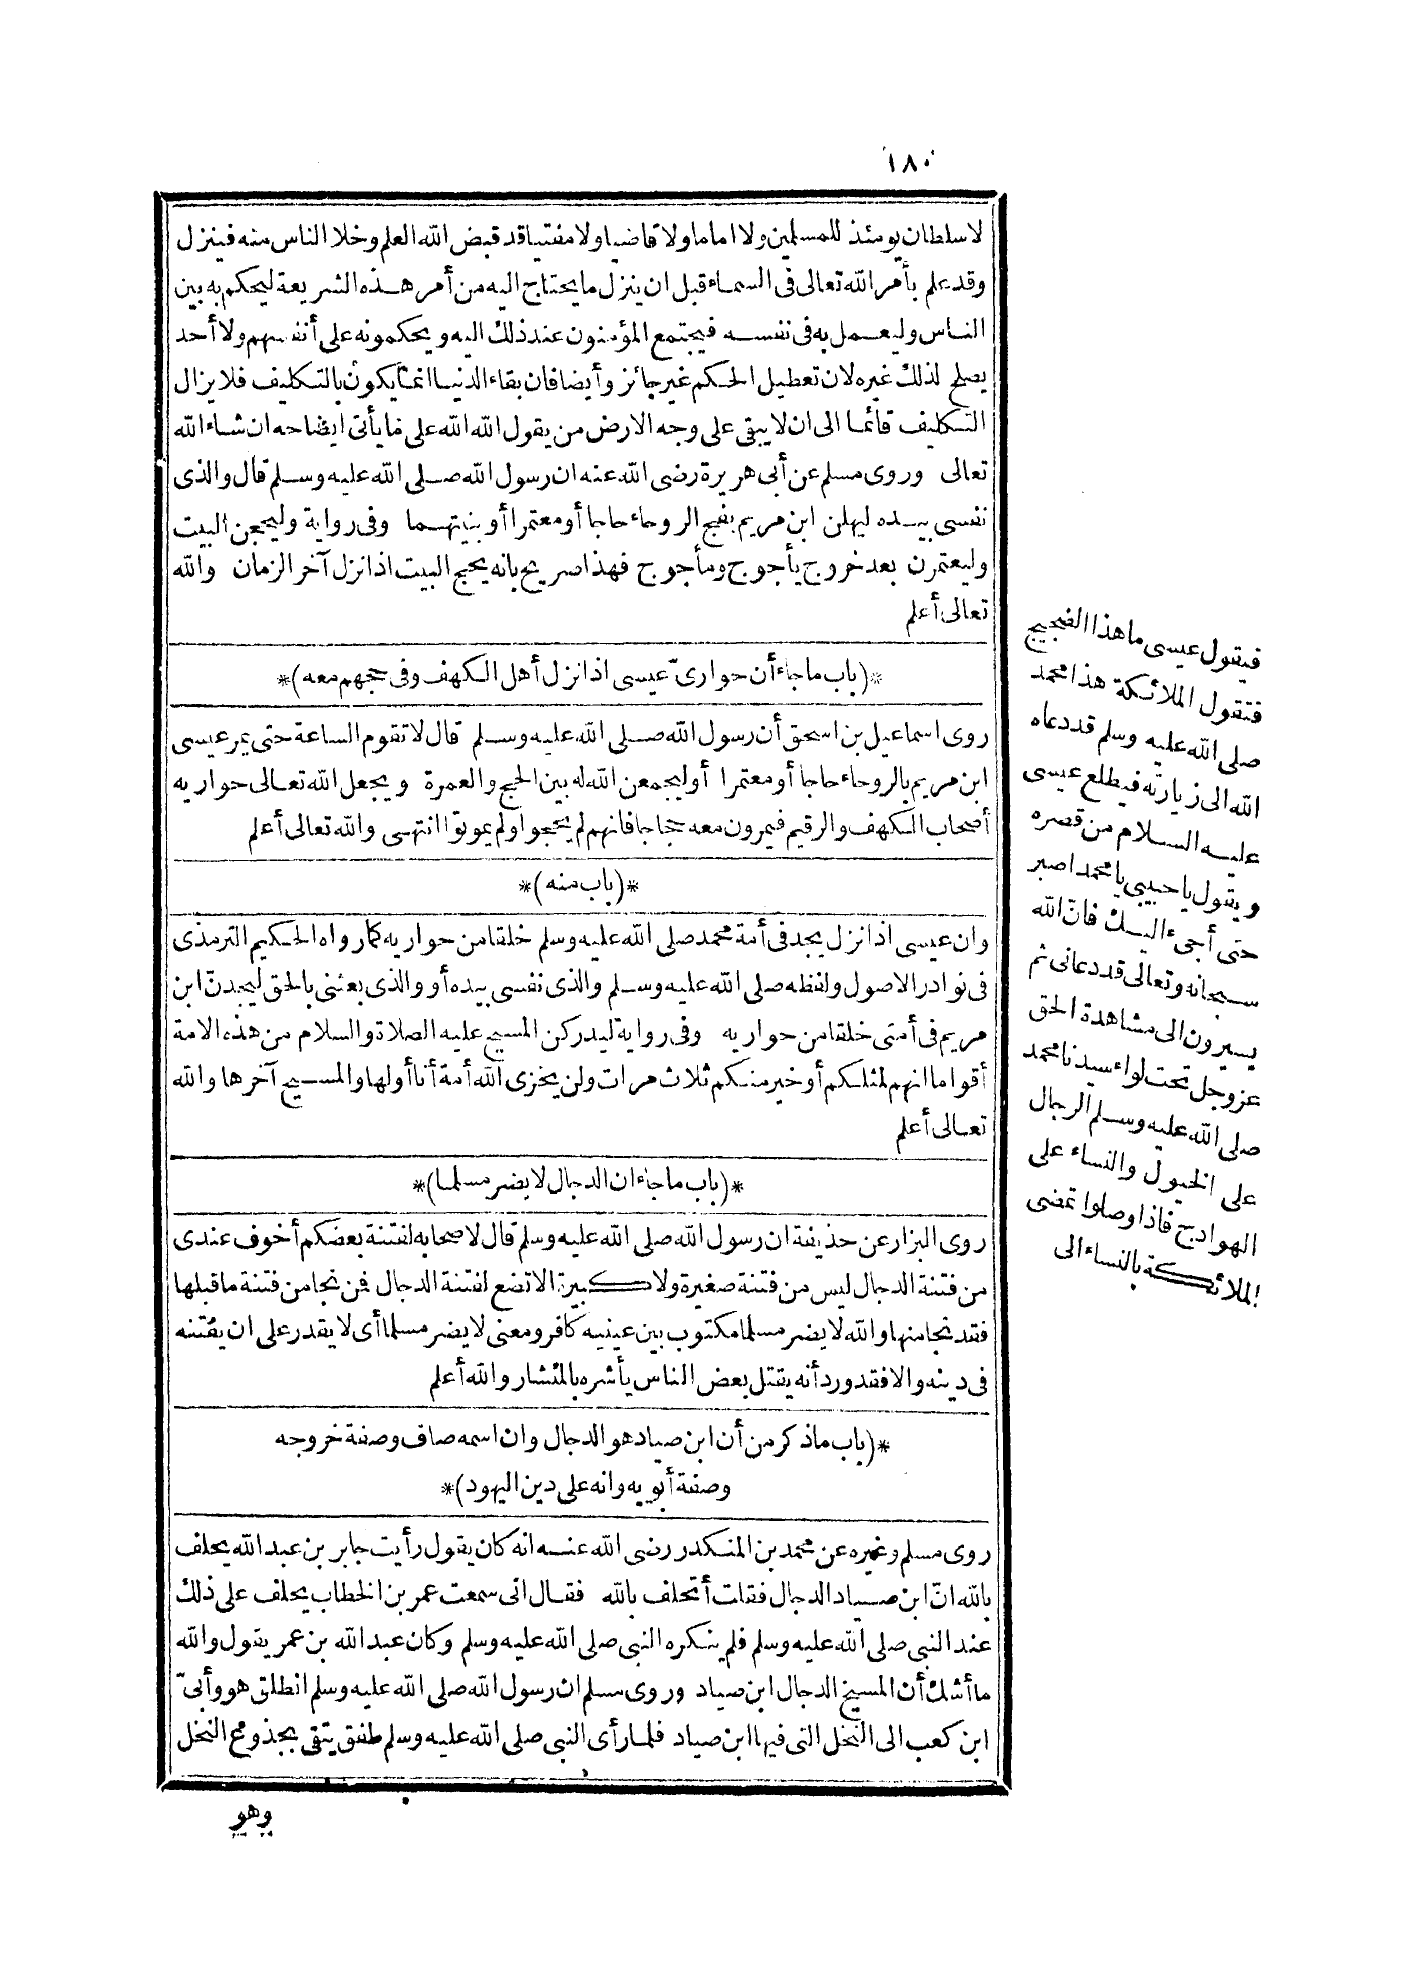 ١٨٠
لا سلطان يومئذ للمسلمين ولا اماما ولا قاضيا ولا مفتيا قد قبض الله العلم وخلا الناس منه فينزل
وقد علم بأمر الله تعالى فى السماء قبل ان ينزل ما يحتاج اليه من أمر هذه الشريعة ليحكم به بين
الناس وليعمل به فى نفسه فيجتمع المؤمنون عند ذلك اليه ويحكمونه على أنفسهم ولا أحد
يصلح لذلك غيره لان تعطيل الحكم غير جائز وأيضا فان بقاء الدنيا انما يكون بالتكليف فلا يزال
التكليف قائما الى ان لا يبقى على وجه الارض من يقول الله الله على ما يأتى ايضاحه ان شاء الله
تعالى وروى مسلم عن أبى هريرة رضى الله عنه ان رسول الله صلى الله عليه وسلم قال والذى
نفسى بيده ليهلن ابن مريم بفج الروحاء حاجا أو معتمرا أو بنيتهما وفى رواية وليحجن البيت
وليعتمرن بعد خروج يأجوج ومأجوج فهذا صريح بانه يحج البيت اذا نزل آخر الزمان والله
تعالى أعلم
*(باب ما جاء أن حوارىّ عيسى اذا نزل أهل الكهف وفى حجهم معه)*
روى اسماعيل بن اسحق أن رسول الله صلى الله عليه وسلم قال لا تقوم الساعة حتى يمر عيسى
ابن مريم بالروحاء حاجا أو معتمرا أو ليجمعن الله له بين الحج والعمرة ويجعل الله تعالى حواريه
أصحاب الكهف والرقيم فيمرون معه حجاجا فانهم لم يحجوا ولم يموتوا انتهى والله تعالى أعلم
*(باب منه)*
وان عيسى اذا نزل يجد فى أمة محمد صلى الله عليه وسلم خلقا من حواريه كما رواه الحكيم الترمذى
فى نوادر الاصول ولفظه صلى الله عليه وسلم والذى نفسى بيده أو والذى بعثنى بالحق ليجدنّ ابن
مريم فى أمتى خلقا من حواريه وفى رواية ليدركن المسيح عليه الصلاة والسلام من هذه الامة
أقواما انهم لمثلكم أو خير منكم ثلاث مرات ولن يخزى الله أمة أنا أولها والمسيح آخرها والله
تعالى أعلم
*(باب ما جاء ان الدجال لا يضر مسلما)*
روى البزار عن حذيفة ان رسول الله صلى الله عليه وسلم قال لاصحابه لفتنة بعضكم أخوف عندى
من فتنة الدجال ليس من فتنة صغيرة ولا كبيرة الا تضع لفتنة الدجال فمن نجا من فتنة ما قبلها
فقد نجا منها والله لا يضر مسلما مكتوب بين عينيه كافر ومعنى لا يضر مسلما أى لا يقدر على ان يفتنه
فى دينه والا فقد ورد أنه يقتل بعض الناس يأشره بالمئشار والله أعلم
*(باب ما ذكر من أن ابن صياد هو الدجال وان اسمه صاف وصفة خروجه
وصفة أبويه وانه على دين اليهود)*
روى مسلم وغيره عن محمد بن المنكدر رضى الله عنه انه كان يقول رأيت جابر بن عبد الله يحلف
بالله انّ ابن صياد الدجال فقلت أتحلف بالله فقال انى سمعت عمر بن الخطاب يحلف على ذلك
عند النبى صلى الله عليه وسلم فلم ينكره النبى صلى الله عليه وسلم وكان عبد الله بن عمر يقول والله
ما أشك أن المسيخ الدجال ابن صياد وروى مسلم ان رسول الله صلى الله عليه وسلم انطلق هو وأبىّ
ابن كعب الى النخل التى فيها ابن صياد فلما رأى النبى صلى الله عليه وسلم طفق يتقى بجذوع النخل
وهو
فيقول عيسى ما هذا الضجيج
فتقول الملائكة هذا محمد
صلى الله عليه وسلم قد دعاه
الله الى زيارته فيطلع عيسى
عليه السلام من قصره
ويقول يا حبيبى يا محمد اصبر
حتى أجىء اليك فانّ الله
سبحانه وتعالى قد دعانى ثم
يسيرون الى مشاهدة الحق
عز وجل تحت لواء سيدنا محمد
صلى الله عليه وسلم الرجال
على الخيول والنساء على
الهوادج فاذا وصلوا تمضى
الملائكة بالنساء الى